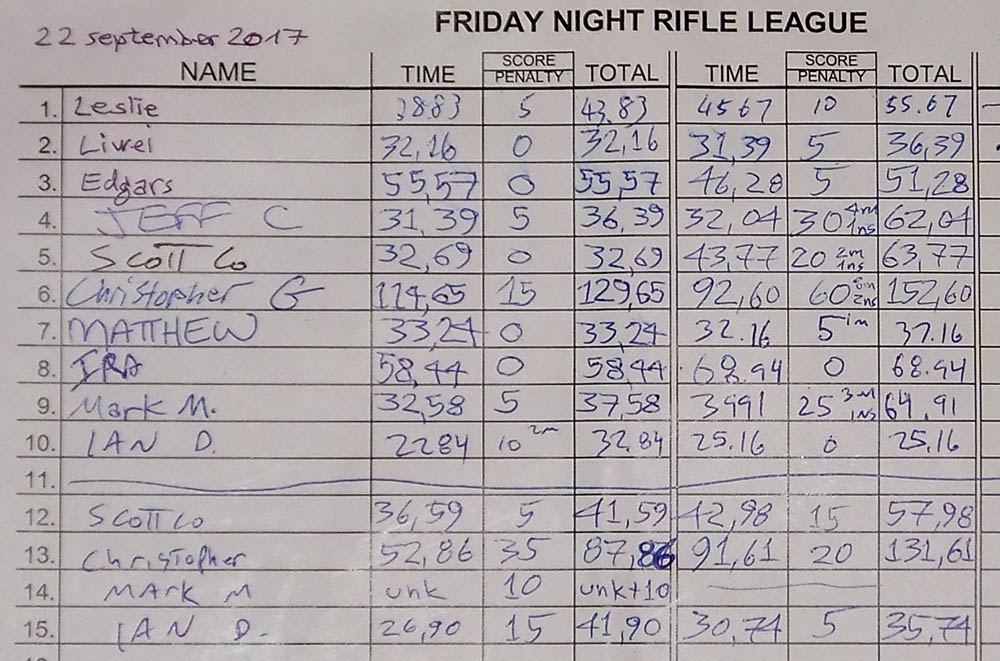 22 september 2017 FRIDAY NIGHT RIFLE LEAGUE
NAME TIME SCORE PENALTY TOTAL TIME SCORE PENALTY TOTAL
1. Leslie 38.83 5 43.83 45 67 10 55.67
2. Livrei 32,16 0 32,16 31,39 5 36,39
3. Edgars 55,57 0 55,57 46,28 5 51,28
4. JEFF C 31,39 5 36,39 32,04 30 4m 1ns 62,04
5. SCOTT Co 32,69 0 32,69 43,77 20 2m 1ns 63,77
6. Christopher G 114,65 15 129,65 92,60 60 2ns 152,60
7. MATTHEW 33,24 0 33,24 32.16 5 1m 37.16
8. IRA 58,44 0 58,44 68.94 0 68.94
9. Mark M. 32,58 5 37,58 3991 25 3m 1ns 64,91
10. IAN D. 2284 10 2m 32.84 25.16 0 25.16
11.
12. SCOTT Co 36,59 5 41,59 42,98 15 57,98
13. Christopher 52,86 35 87,86 91,61 20 131,61
14. MARK M unk 10 unk+10
15. IAN D. 26,90 15 41,90 30,74 5 35,74